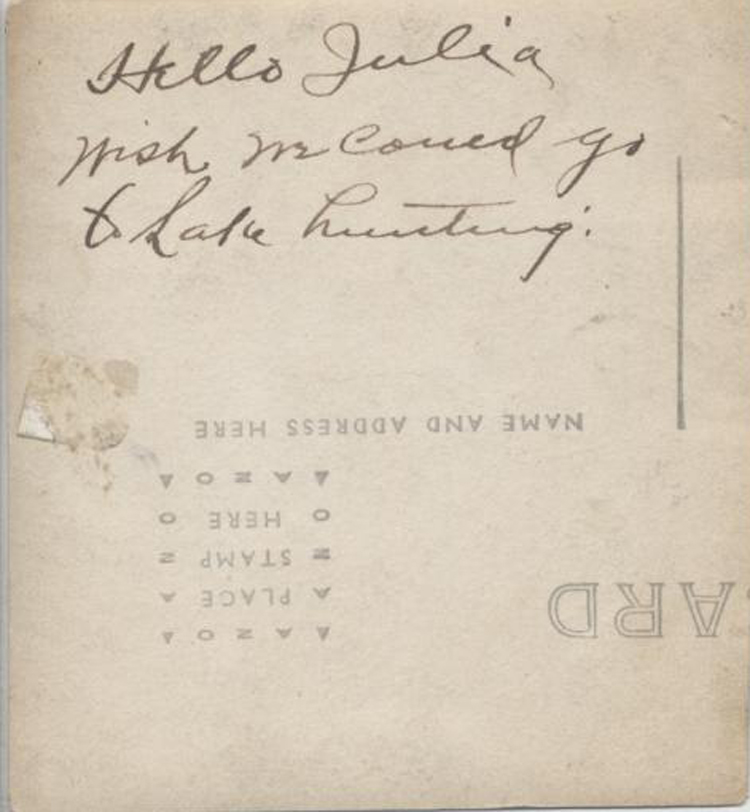 Hello Julia
Wish we Could go
to Lake hunting.
NAME AND ADDRESS HERE
A A Z O A
O HERE O
Z STAMP Z
A PLACE A
A A Z O A
ARD